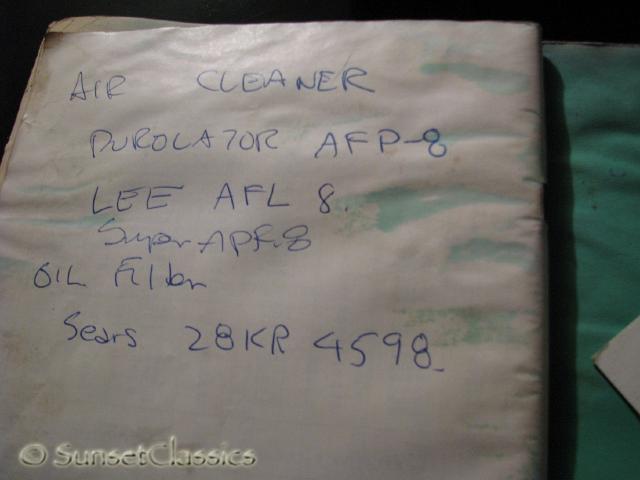 AIR CLEANER
PUROLATOR AFP-8
LEE AFL 8.
Super APF-8
OIL Filter
Sears 28KR 4598
© SunsetClassics